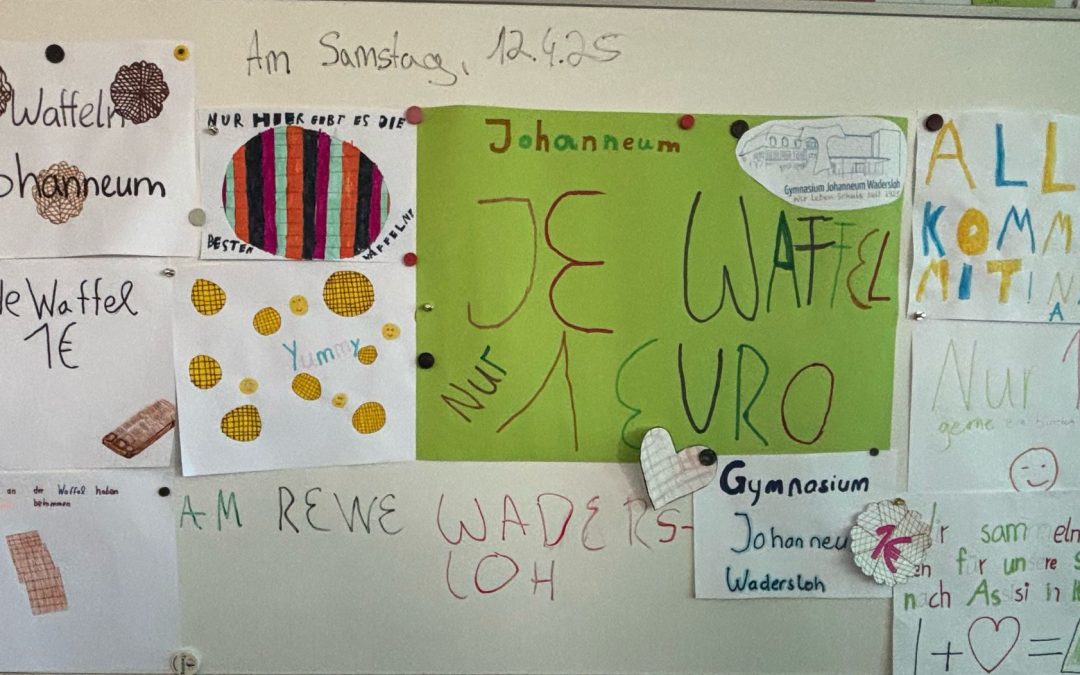 Am Samstag, 12.4.25
Waffeln
Johanneum
NUR HIER GIBT ES DIE
BESTEN WAFFELN!
Johanneum
Gymnasium Johanneum Wadersloh
Wir leben Schule seit
JE WAFFEL
NUR 1 EURO
ALL
KOMM
MIT!
de Waffel
1€
Yummy
Nur 1
gerne
an der Waffel haben
bekommen
AM REWE WADERS-
LOH
Gymnasium
Johanneu
Wadersloh
1€
r sammeln
en für unsere S
nach Assisi in
1 + ♡ =